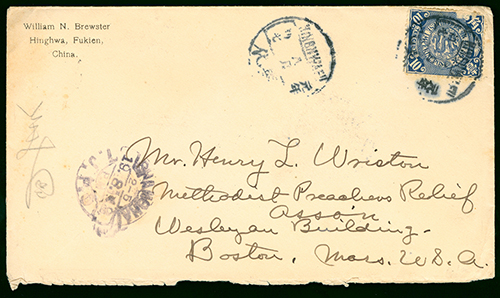 William N. Brewster
Hinghwa, Fukien,
China.
10
10
Mr. Henry L. Wriston
Methodist Preachers Relief
Assoin
Wesleyan Building.
Boston, Mass. U.S.A.